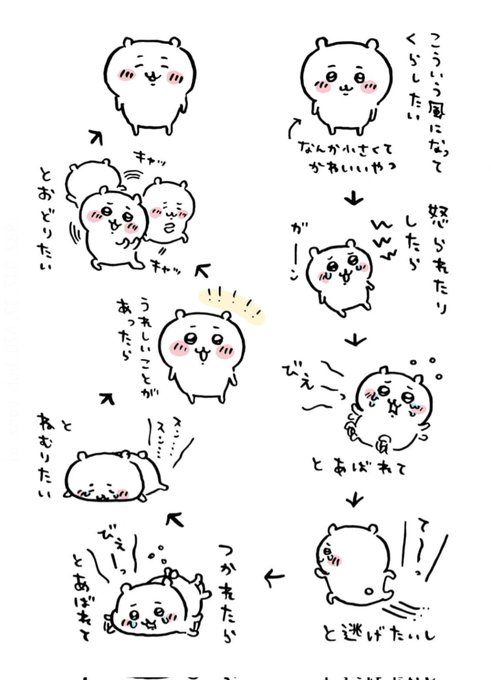 こういう風になって
くらしたい
なんか小さくて
かわいいやつ
怒られたり
したら
ガーン
びえーっ
とあばれて
てーっ
と逃げたいし
つかれたら
びえーっ
とあばれて
スン…
スン…
と
ねむりたい
うれしいことが
あったら
!!!!!
キャッ
キャッ
とおどりたい